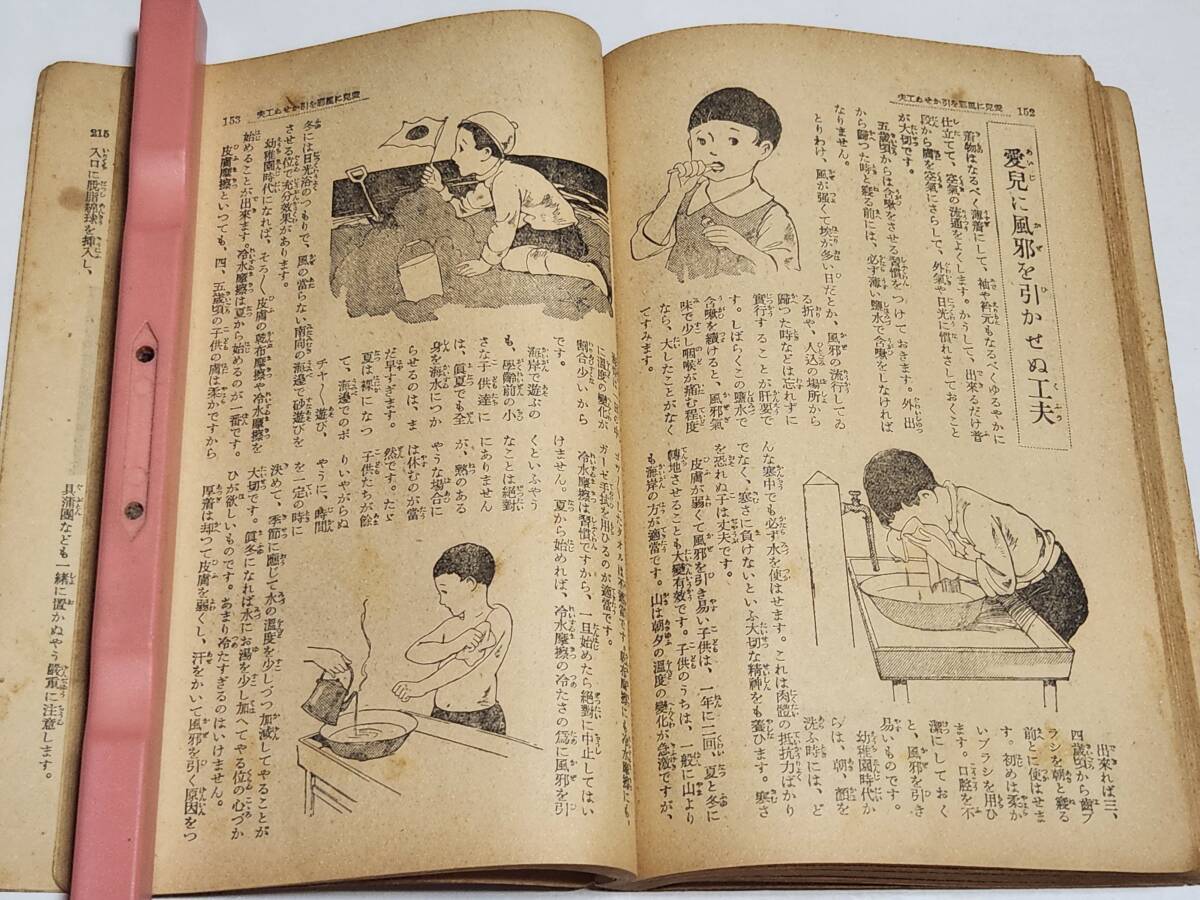 152
愛兒に風邪を引かせぬ工夫
愛兒に風邪を引かせぬ工夫
着物はなるべく薄着にして、袖や衿元もなるべくゆるやかに
仕立てて、空氣の流通をよくします。かうして、出來るだけ普
段から膚を空氣にさらして、外氣や日光に慣れさしておくこと
が大切です。
五歳頃からは含嗽をさせる習慣をつけておきます。外出
から歸つた時と寢る前には、必ず薄い鹽水で含嗽をしなければ
なりません。
とりわけ、風が強くて埃が多い日だとか、風邪の流行してゐ
る折や、人込の場所から
歸つた時などは忘れずに
實行することが肝要で
す。しばらくこの鹽水で
含嗽を續けると、風邪氣
味で少し咽喉が痛む程度
なら、大したことがなく
てすみます。
出來れば三、
四歳頃から齒ブ
ラシを朝と寢る
前とに使はせま
す。初めは柔か
いブラシを用ひ
ます。口腔を不
潔にしておく
と、風邪を引き
易いものです。
幼稚園時代か
らは、朝、顔を
洗ふ時には、ど
んな寒中でも必ず水を使はせます。これは肉體の抵抗力ばかり
でなく、寒さに負けないといふ大切な精神をも養ひます。寒さ
を恐れぬ子は丈夫です。
皮膚が弱くて風邪を引き易い子供は、一年に二回、夏と冬に
轉地させることも大變有效です。子供のうちは、一般に山より
も海岸の方が適當です。山は朝夕の溫度の變化が急激ですが、
153
愛兒に風邪を引かせぬ工夫
に溫度の變化が
割合少いから
です。
海岸で遊ぶの
も、學齡前の小
さな子供達に
は、眞夏でも全
身を海水につか
らせるのは、ま
だ早すぎます。
夏は裸になつ
て、海邊でのボ
チャ〳〵遊び、
冬には日光浴のつもりで、風の當らない南向の海邊で砂遊びを
させる位で充分效果があります。
幼稚園時代になれば、そろ〳〵皮膚の乾布摩擦や冷水摩擦を
始めることが出來ます。冷水摩擦は夏から始めるのが一番です。
皮膚摩擦といつても、四、五歳頃の子供の膚は柔かですから
ガーゼ手拭を用ひるのが適當です。
冷水摩擦は習慣ですから、一旦始めたら絕對に中止してはい
けません。夏から始めれば、冷水摩擦の冷たさの爲に風邪を引
くといふやう
なことは絕對
にありません
が、熱のある
やうな場合に
は休むのが當
然です。たゞ
子供たちが餘
りいやがらぬ
やうに、時間
を一定の時に
決めて、季節に應じて水の溫度を少しづつ加減してやることが
大切です。眞冬になれば水にお湯を少し加へてやる位の心づか
ひが欲しいものです。あまり冷たすぎるのはいけません。
厚着は却つて皮膚を弱くし、汗をかいて風邪を引く原因をつ
215
入口に脫脂綿球を挿入し、
具蒲團なども一緒に置かぬやう嚴重に注意します。